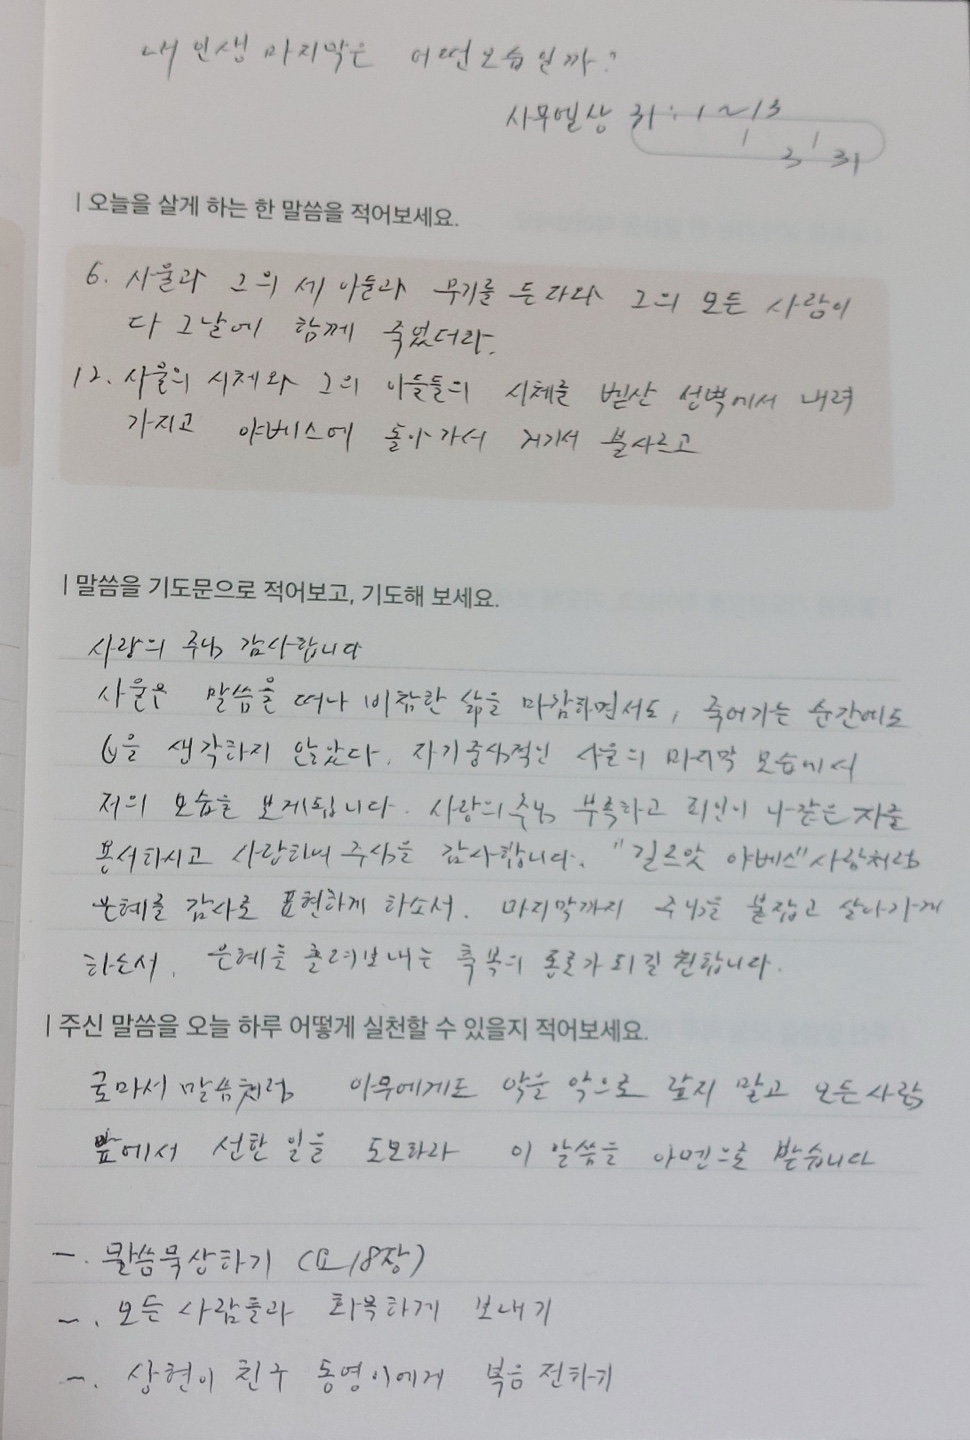 내 인생 마지막은 어떤모습일까?
사무엘상 31 : 1 ~ 13
1 1
3 31
| 오늘을 살게 하는 한 말씀을 적어보세요.
6. 사울과 그의 세 아들과 무기를 든 자와 그의 모든 사람이
다 그날에 함께 죽었더라.
12. 사울의 시체와 그의 아들들의 시체를 벧산 성벽에서 내려
가지고 야베스에 돌아가서 거기서 불사르고
| 말씀을 기도문으로 적어보고, 기도해 보세요.
사랑의 주님 감사합니다
사울은 말씀을 떠나 비참한 삶을 마감하면서도, 죽어가는 순간에도
을 생각하지 않았다. 자기중심적인 사울의 마지막 모습에서
저의 모습을 보게됩니다. 사랑의 주님 부족하고 죄인이 나같은 자를
용서하시고 사랑하며 주심을 감사합니다. "길르앗 야베스" 사람처럼
은혜를 감사로 표현하게 하소서. 마지막까지 주님을 붙잡고 살아가게
하소서. 은혜를 흘려보내는 축복의 통로가 되길 원합니다.
| 주신 말씀을 오늘 하루 어떻게 실천할 수 있을지 적어보세요.
로마서 말씀처럼 아무에게도 악을 악으로 갚지 말고 모든사람
앞에서 선한 일을 도모하라 이 말씀을 아멘으로 받습니다
-. 말씀묵상하기 (요 18장)
-. 모든 사람들과 화목하게 보내기
-. 상현이 친구 동영이에게 복음 전하기